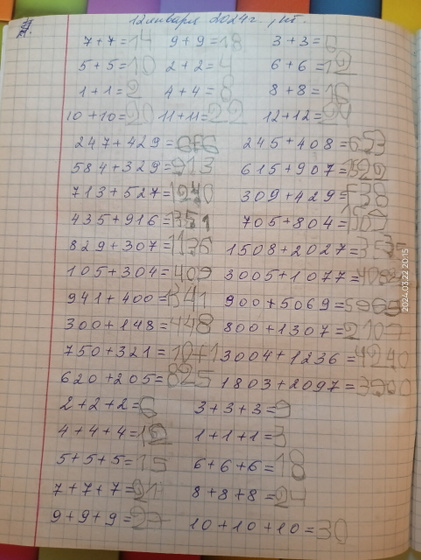 12 января 2024 г., пт.
7+7=14 9+9=18 3+3=6
5+5=10 2+2=4 6+6=12
1+1=2 4+4=8 8+8=16
10+10=20 11+11=22 12+12=
247+429=676 245+408=653
584+329=913 615+907=
713+527=1240 309+429=738
435+916=1351 705+804=1509
829+307=1136 1508+2027=
105+304=409 3005+1077=
941+400=1341 900+5069=
300+148=448 800+1307=
750+321=1071 3004+1236=4240
620+205=825 1803+2097=3900
2+2+2=6 3+3+3=9
4+4+4=12 1+1+1=3
5+5+5=15 6+6+6=18
7+7+7=21 8+8+8=24
9+9+9=27 10+10+10=30